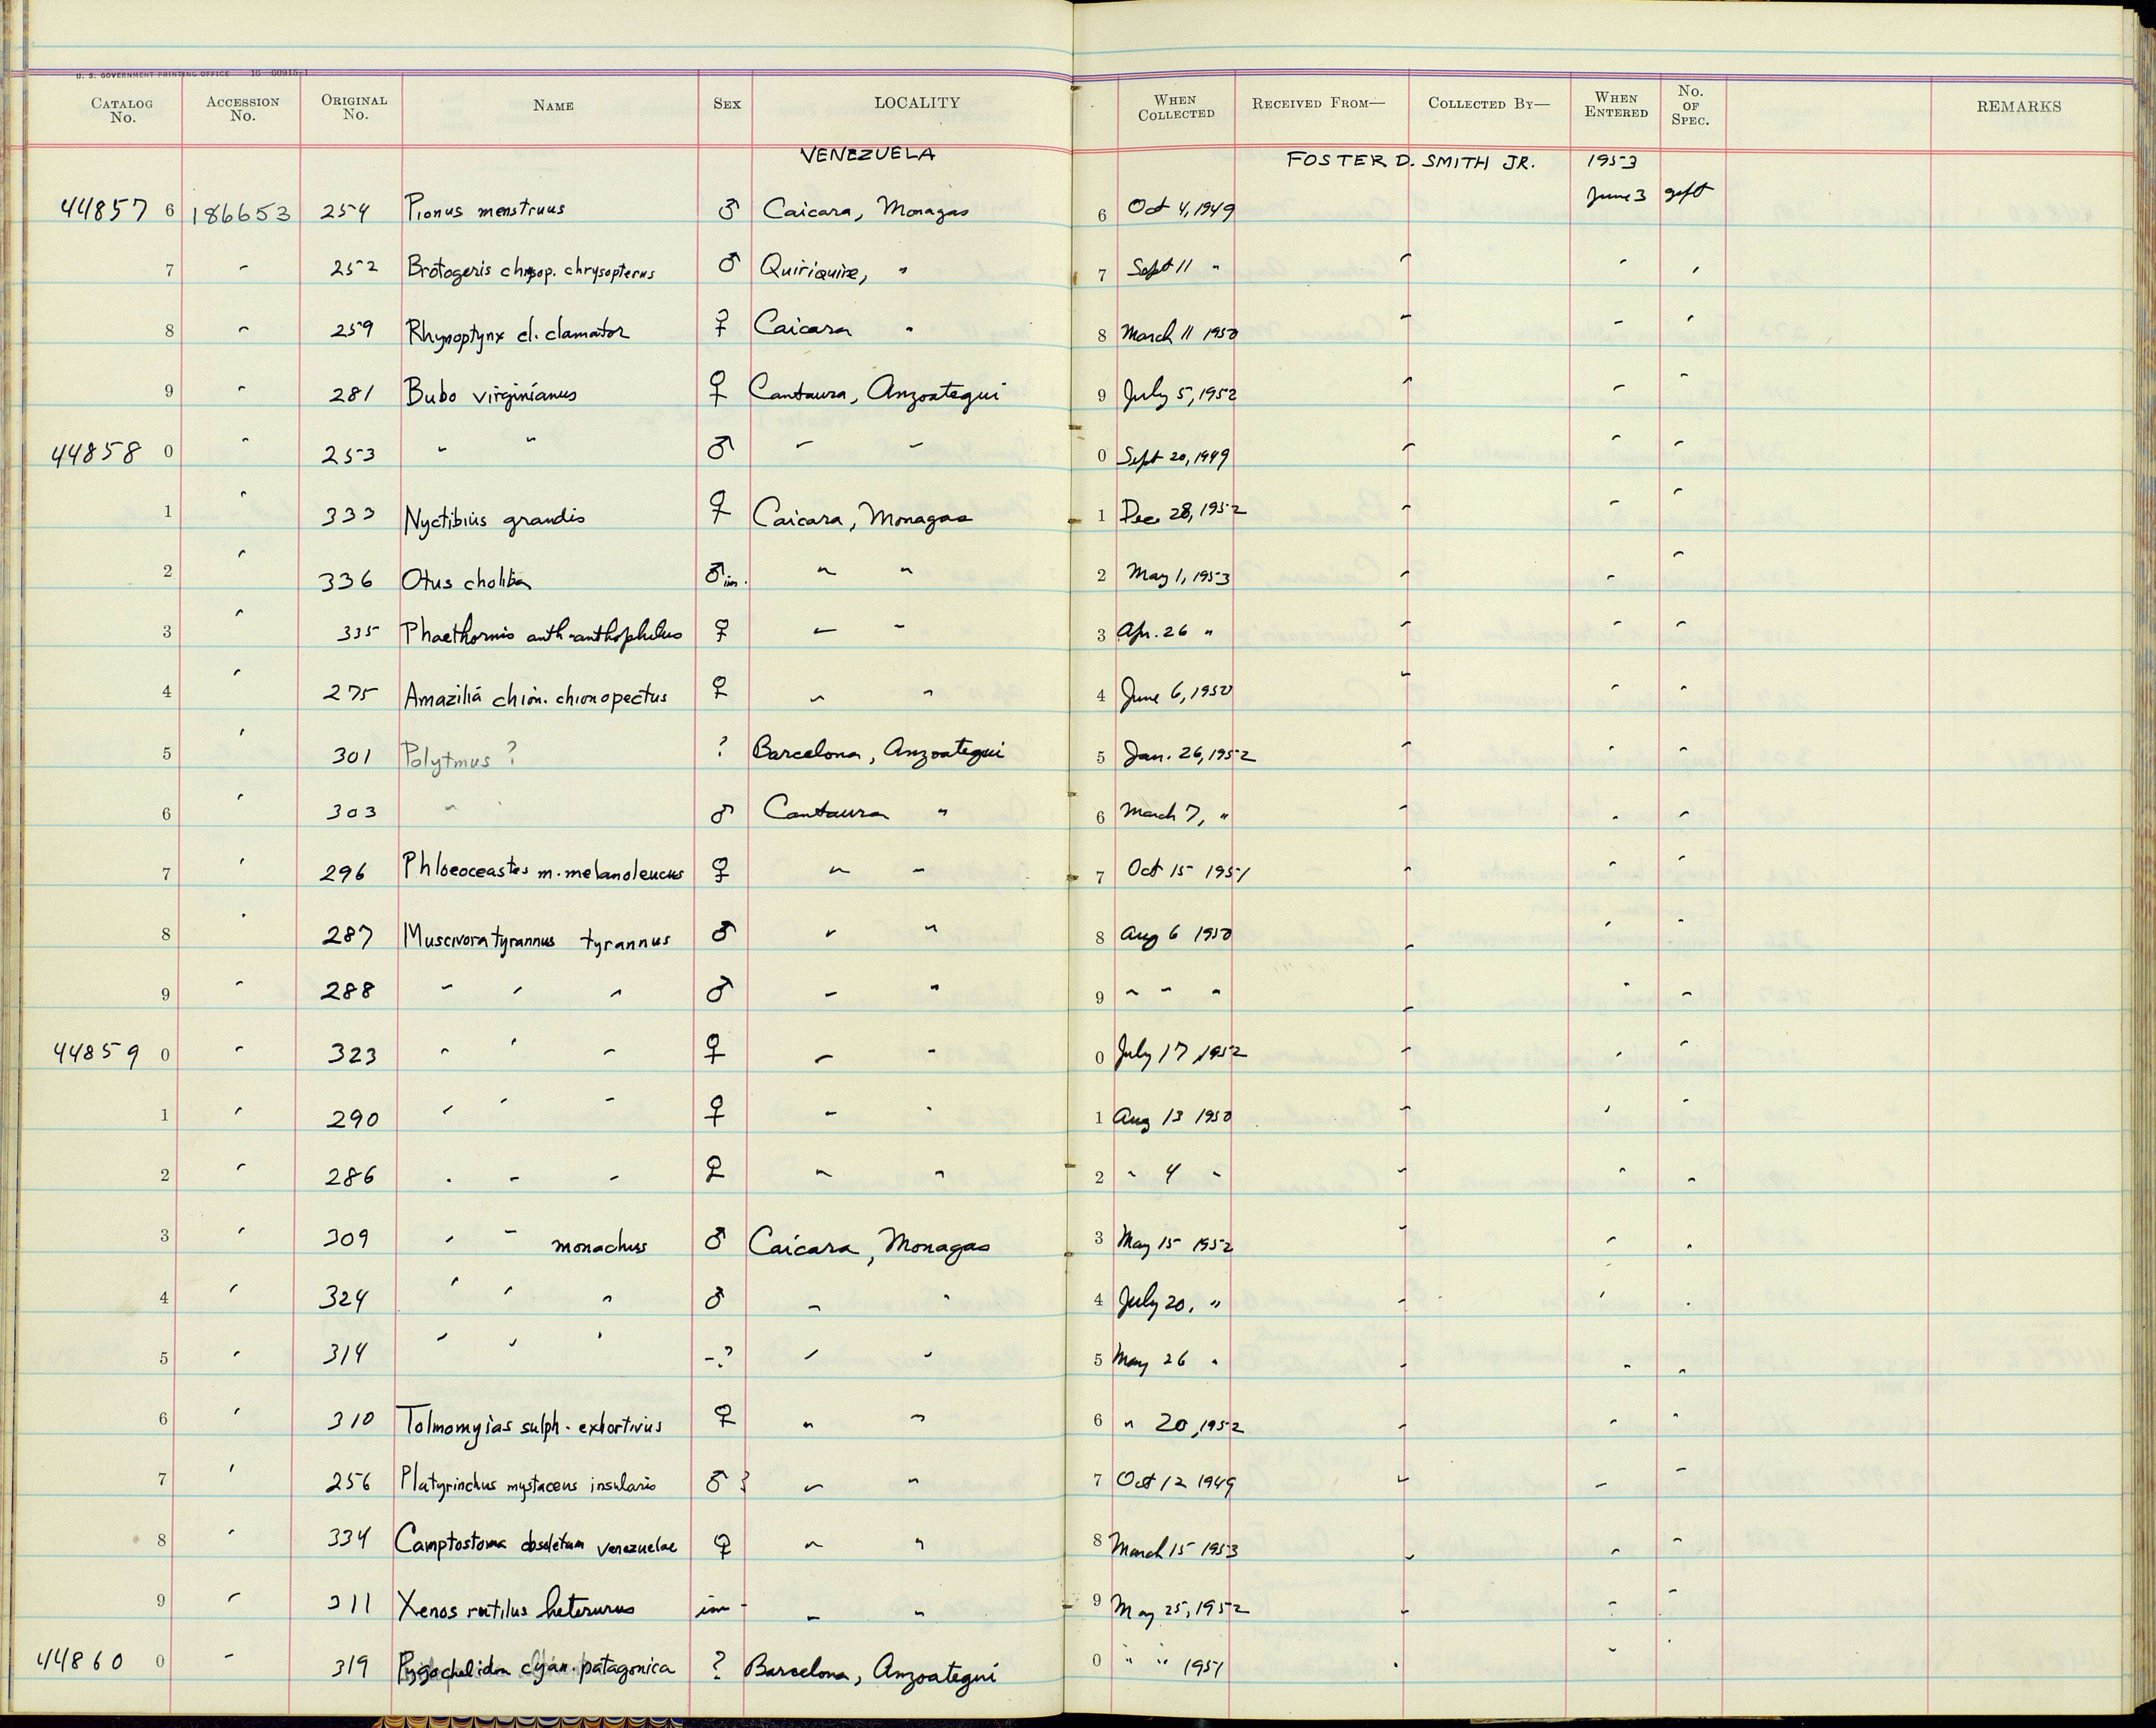 U. S. GOVERNMENT PRINTING OFFICE 16—60915-1
CATALOG No. ACCESSION No. ORIGINAL No. NAME SEX LOCALITY WHEN COLLECTED RECEIVED FROM— COLLECTED BY— WHEN ENTERED No. OF SPEC. REMARKS
VENEZUELA FOSTER D. SMITH JR. 1953
44857 6 186653 254 Pionus menstruus ♂ Caicara, Monagas 6 Oct 4, 1949 June 3 gift
7 " 252 Brotogeris chrysop. chrysopterus ♂ Quiriquire, " 7 Sept 11 " " " "
8 " 259 Rhynoptynx cl. clamator ♀ Caicara " 8 March 11 1950 " " "
9 " 281 Bubo virginianus ♀ Cantaura, Anzoategui 9 July 5, 1952 " " "
44858 0 " 253 " " ♂ " " 0 Sept 20, 1949 " " "
1 " 333 Nyctibius grandis ♀ Caicara, Monagas 1 Dec. 28, 1952 " " "
2 " 336 Otus choliba ♂ im. " " 2 May 1, 1953 " " "
3 " 335 Phaethornis anth-anthophilus ♀ " " 3 Apr. 26 " " " "
4 " 275 Amazilia chion. chionopectus ♀ " " 4 June 6, 1950 " " "
5 " 301 Polytmus ? ? Barcelona, Anzoategui 5 Jan. 26, 1952 " " "
6 " 303 " " ♂ Cantaura " 6 March 7, " " " "
7 " 296 Phloeoceastes m. melanoleucus ♀ " " 7 Oct 15 1951 " " "
8 " 287 Muscivora tyrannus tyrannus ♂ " " 8 Aug 6 1950 " " "
9 " 288 " " " ♂ " " 9 " " " " " "
44859 0 " 323 " " " ♀ " " 0 July 17, 1952 " " "
1 " 290 " " " ♀ " " 1 Aug 13 1950 " " "
2 " 286 " " " ♀ " " 2 " 4 " " " "
3 " 309 " " monachus ♂ Caicara, Monagas 3 May 15 1952 " " "
4 " 324 " " " ♂ " " 4 July 20, " " " "
5 " 314 " " " -? " " 5 May 26 " " " "
6 " 310 Tolmomyias sulph. exhortivus ♀ " " 6 " 20, 1952 " " "
7 " 256 Platyrinchus mystaceus insularis ♂ ? " " 7 Oct 12 1949 " " "
8 " 334 Camptostoma obsoletum venezuelae ♀ " " 8 March 15 1953 " " "
9 " 311 Xenos rutilus heterurus im - " " 9 May 25, 1952 " " "
44860 0 " 319 Pygochelidon cyan. patagonica ? Barcelona, Anzoategui 0 " " 1951 " " "